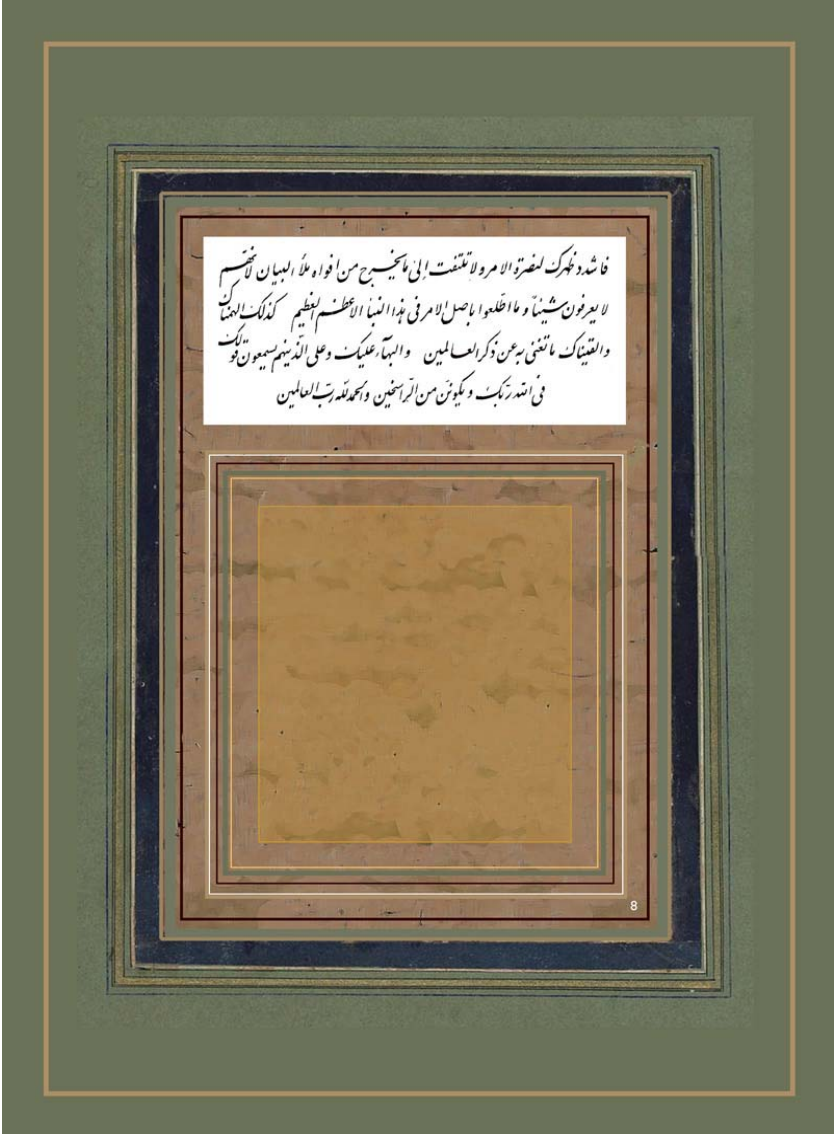 فاشدد ظهرك لنصرة الامر ولا تلتفت إلى ما يخرج من افواه ملأ البيان لأنهم
لا يعرفون شيئاً و ما اطّلعوا باصل الامر فى هذا النبأ الأعظم العظيم كذلك الهمناك
والقيناك ما تغنى به عن ذكر العالمين والبهآء عليك وعلى الّذينهم يسمعون قولك
فى الله ربّك و يكوننّ من الرّاسخين والحمد لله ربّ العالمين
8